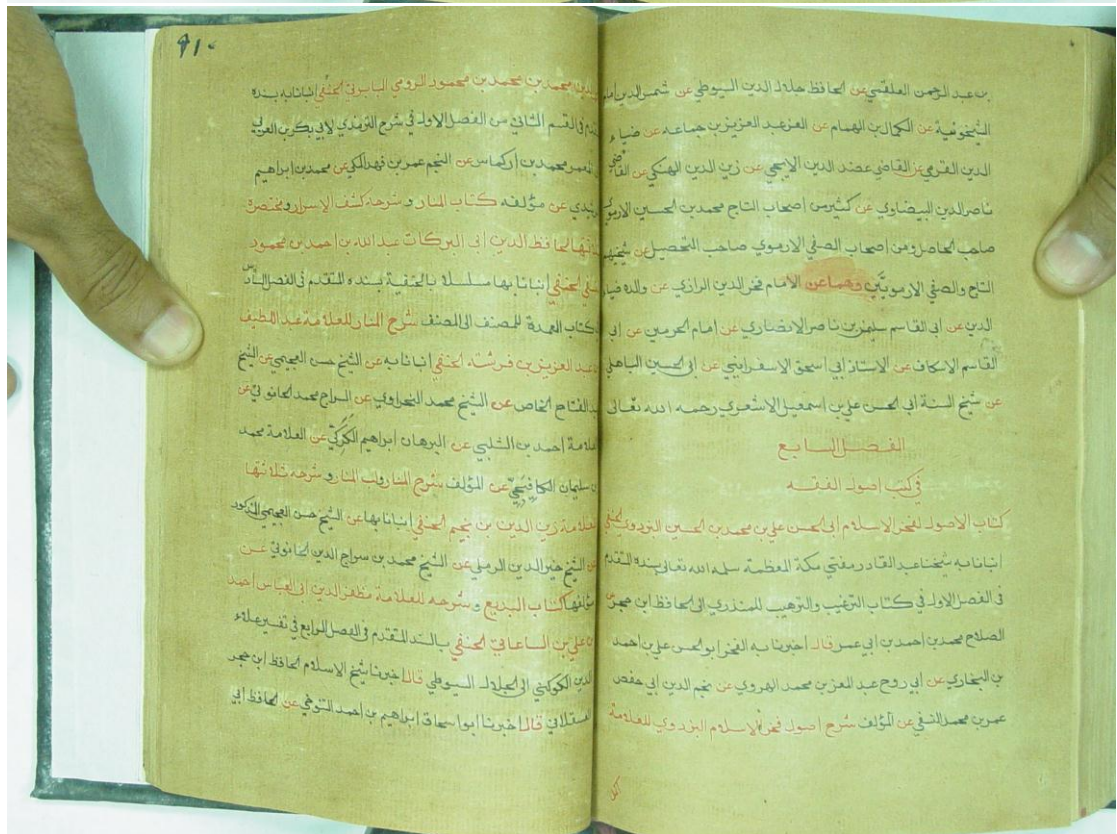 بن عبد الرحمن العلقمي عن الحافظ جلال الدين السيوطي عن شمس الدين امام
الشيخونية عن الكمال بن الهمام عن العز عبد العزيز بن جماعه عن ضياء
الدين القرمي عن القاضي عضد الدين الايجي عن زين الدين الهنكي عن القاضي
ناصر الدين البيضاوي عن كثير من اصحاب التاج محمد بن الحسين الارموي
صاحب الحاصل ومن اصحاب الصفي الارموي صاحب التحصيل عن شيخيهم
التاج والصفي الارمويَّين وهما عن الامام فخر الدين الرازي عن والده ضياء
الدين عن ابي القاسم سليمن بن ناصر الانصاري عن امام الحرمين عن ابي
القاسم الاسكاف عن الاستاذ ابي اسحق الاسفرايني عن ابي الحسين الباهلي
عن شيخ السنة ابي الحسن علي بن اسمعيل الاشعري رحمه الله تعالى
الفصل السابع
في كتب اصول الفقه
كتاب الاصول لفخر الاسلام ابي الحسن علي بن محمد بن الحسين البزدوي الحنفي
انبانا به شيخنا عبد القادر مفتي مكة المعظمة سلمه الله تعالى بسنده المتقدم
في الفصل الاول في كتاب الترغيب والترهيب للمنذري الى الحافظ ابن حجر عن
الصلاح محمد بن احمد بن ابي عمر قال اخبرنا به الفخر ابو الحسن علي بن احمد
بن البخاري عن ابي روح عبد المعز بن محمد الهروي عن نجم الدين ابي حفص
عمر بن محمد النسفي عن المؤلف شرح اصول فخر الاسلام البزدوي للعلامة
اكمل
٩١٠
الدين محمد بن محمد بن محمود الرومي البابرتي الحنفي انبانا به بسنده
المتقدم في القسم الثاني من الفصل الاول في شرح الترمذي لابي بكر بن العربي
المعمر محمد بن اركماس عن النجم عمر بن فهد المكي عن محمد بن ابراهيم
عن مؤلفه كتاب المنار وشرحه كشف الاسرار ومختصره
الحافظ الدين ابي البركات عبد الله بن احمد بن محمود
النسفي الحنفي انبانا بها مسلسلا بالحنفية بسنده المتقدم في الفصل السادس
كتاب العمدة للمصنف الى المصنف شرح المنار للعلامة عبد اللطيف
بن عبد العزيز بن فرشته الحنفي انبانا به عن الشيخ حسن العجيمي عن الشيخ
عبد الفتاح الخاص عن الشيخ محمد النحراوي عن السراج محمد الحانوتي عن
العلامة احمد بن الشلبي عن البرهان ابراهيم الكَرَكي عن العلامة محمد
بن سليمان الكافيَجي عن المؤلف شرح المنار ولب المنار وشرحه ثلاثتها
للعلامة زين الدين بن نجيم الحنفي انبانا بها عن الشيخ حسن العجيمي المذكور
عن الشيخ خير الدين الرملي عن الشيخ محمد بن سراج الدين الحانوتي عن
مؤلفها كتاب البديع وشرحه للعلامة مظفر الدين ابي العباس احمد
بن علي بن الساعاتي الحنفي بالسند المتقدم في الفصل الرابع في تفسير علاء
الدين الكوكني الى الجلال السيوطي قال اخبرنا شيخ الاسلام الحافظ ابن حجر
العسقلاني قال اخبرنا ابو اسحاق ابراهيم بن احمد التنوخي عن الحافظ ابي